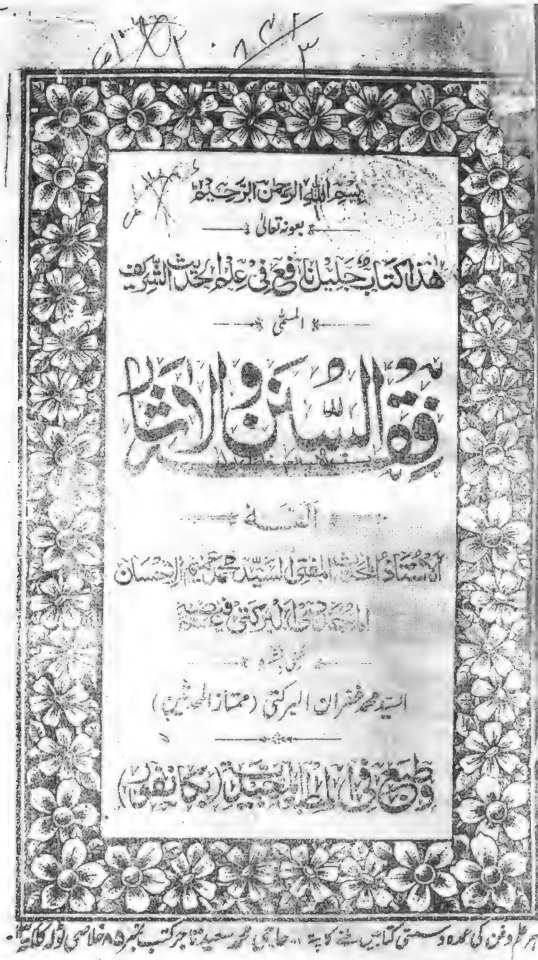 بسم الله الرحمن الرحيم
بعونه تعالى
هذا كتاب جليل نافع في علم الحديث الشريف
المسمى
فقه السنن والآثار
ألفه
الأستاذ المحدث المفتي السيد محمد عميم الإحسان
المجددي البركتي
السيد محمد غفران البركتي (ممتاز المحدثين)
وطبع في المطبع (بكانفور)
ہر علم و فن کی عمدہ و سستی کتابیں ملنے کا پتہ :۔ حاجی محمد سعید تاجر کتب نمبر ۸۵ خلاصی ٹولہ کلکتہ